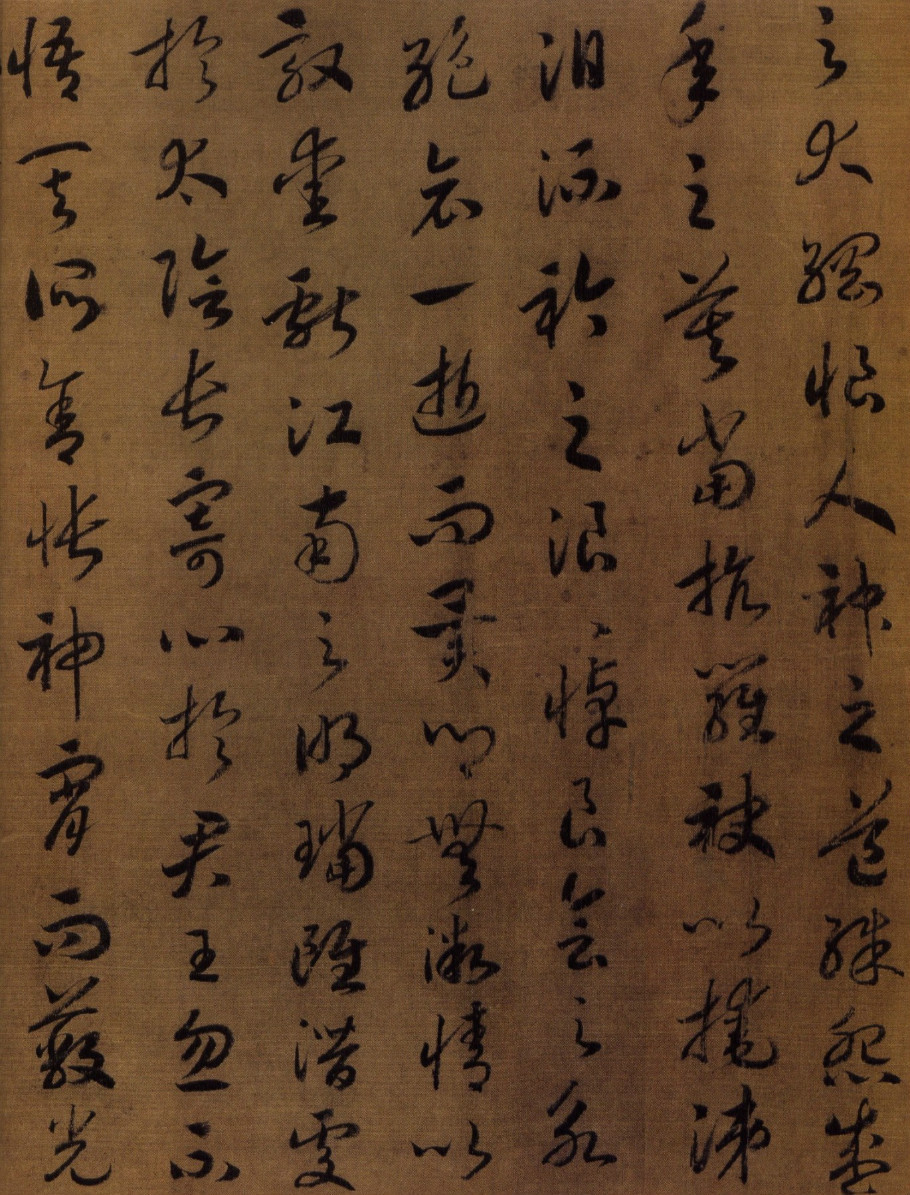 之大綱恨人神之道殊怨盛
年之莫當抗羅袂以掩涕
淚流衿之浪〻悼良會之永
絕哀一逝而異鄉無微情以
效愛獻江南之明璫雖潛處
於太陰長寄心於君王忽不
悟其所舍悵神宵而蔽光